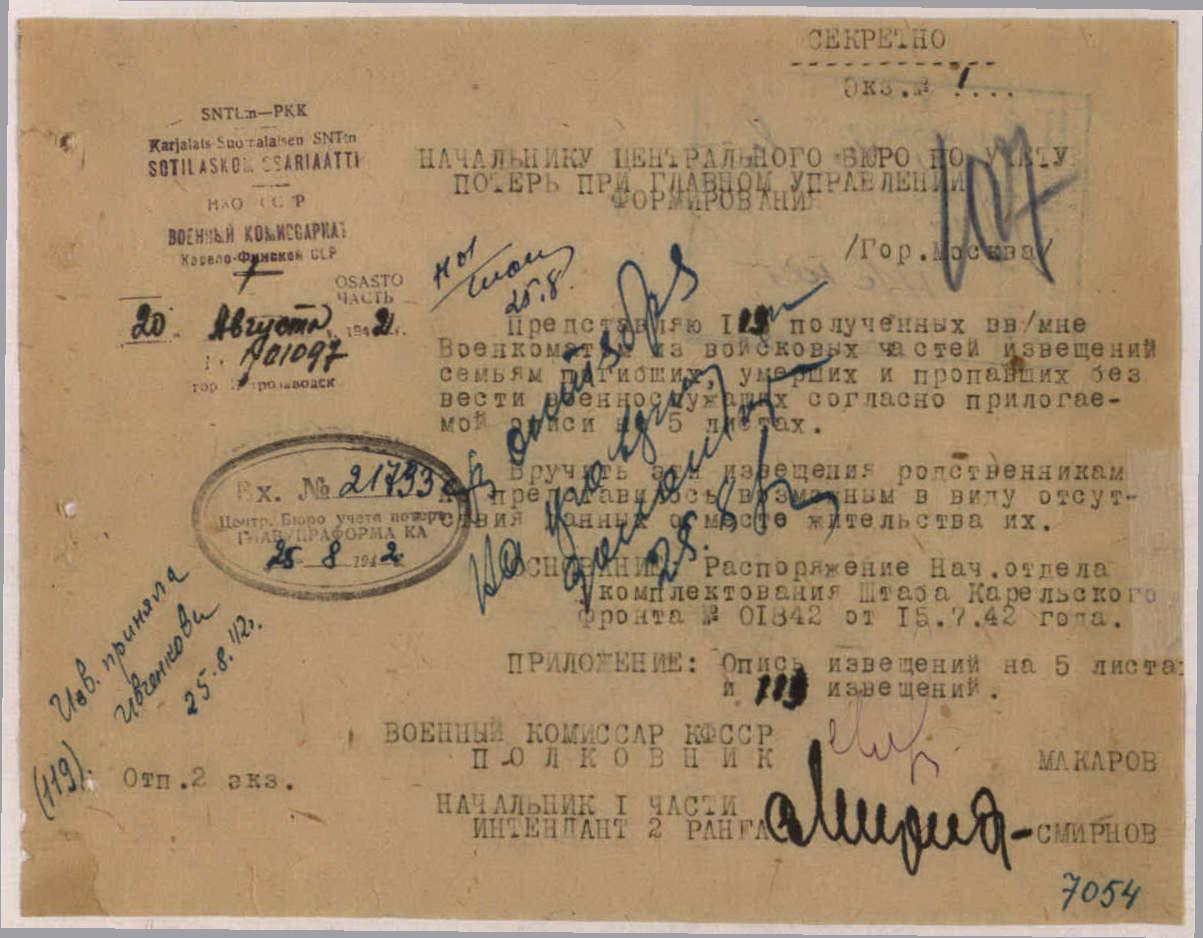 СЕКРЕТНО
Экз.№ 1...
SNTL:n—PKK
Karjalais-Suomalaisen SNT:n
SOTILASKOMISSARIAATTI
НКО СССР
ВОЕННЫЙ КОМИССАРИАТ
Карело-Финской ССР
OSASTO
ЧАСТЬ
20 Августа 1942 г.
№ 01097
гор. Петрозаводск
НАЧАЛЬНИКУ ЦЕНТРАЛЬНОГО БЮРО ПО УЧЕТУ
ПОТЕРЬ ПРИ ГЛАВНОМ УПРАВЛЕНИИ
ФОРМИРОВАНИЯ
/Гор.Москва/
107
25.8.
Представляю 119 полученных вв/мне
Военкоматом из войсковых частей извещений
семьям погибших, умерших и пропавших без
вести военнослужащих согласно прилогае-
мой описи на 5 листах.
Вручить эти извещения родственникам
не представилось возможным в виду отсут-
ствия данных о месте жительства их.
ОСНОВАНИЕ: Распоряжение Нач.отдела
укомплектования Штаба Карельского
фронта № 01842 от 15.7.42 года.
ПРИЛОЖЕНИЕ: Опись извещений на 5 листах
и 119 извещений.
Вх. № 21733
Центр. Бюро учета потерь
ГЛАВУПРАФОРМА КА
25- 8 1942
25.8
Изв. приняла
Ивченкова
25.8.42г.
(119).
Отп.2 экз.
ВОЕННЫЙ КОМИССАР КФССР
ПОЛКОВНИК МАКАРОВ
НАЧАЛЬНИК I ЧАСТИ
ИНТЕНДАНТ 2 РАНГА -СМИРНОВ
7054